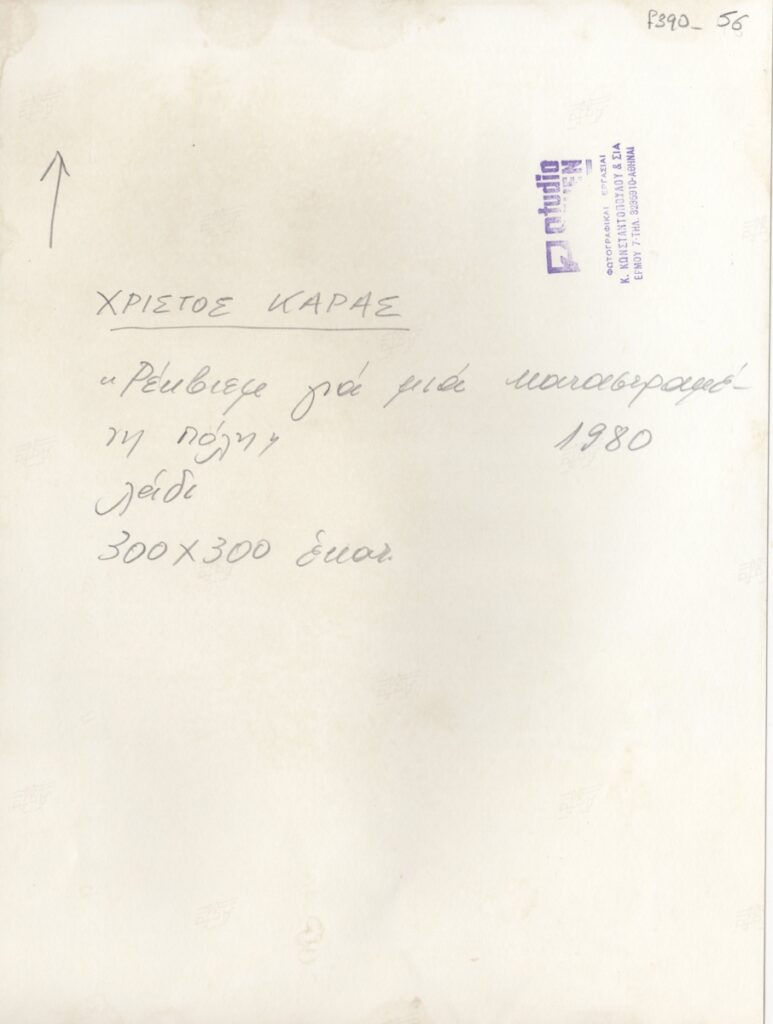 f390_ 56
studio
ΦΩΤΟΓΡΑΦΙΚΑΙ ΕΡΓΑΣΙΑΙ
Κ. ΚΩΝΣΤΑΝΤΟΠΟΥΛΟΥ & ΣΙΑ
ΕΡΜΟΥ 7-ΤΗΛ. 3235910-ΑΘΗΝΑΙ
ΧΡΙΣΤΟΣ ΚΑΡΑΣ
"Ρέκβιεμ γιά μιά καταστραμέ-
νη πόλη" 1980
λάδι
300X300 ἑκατ.